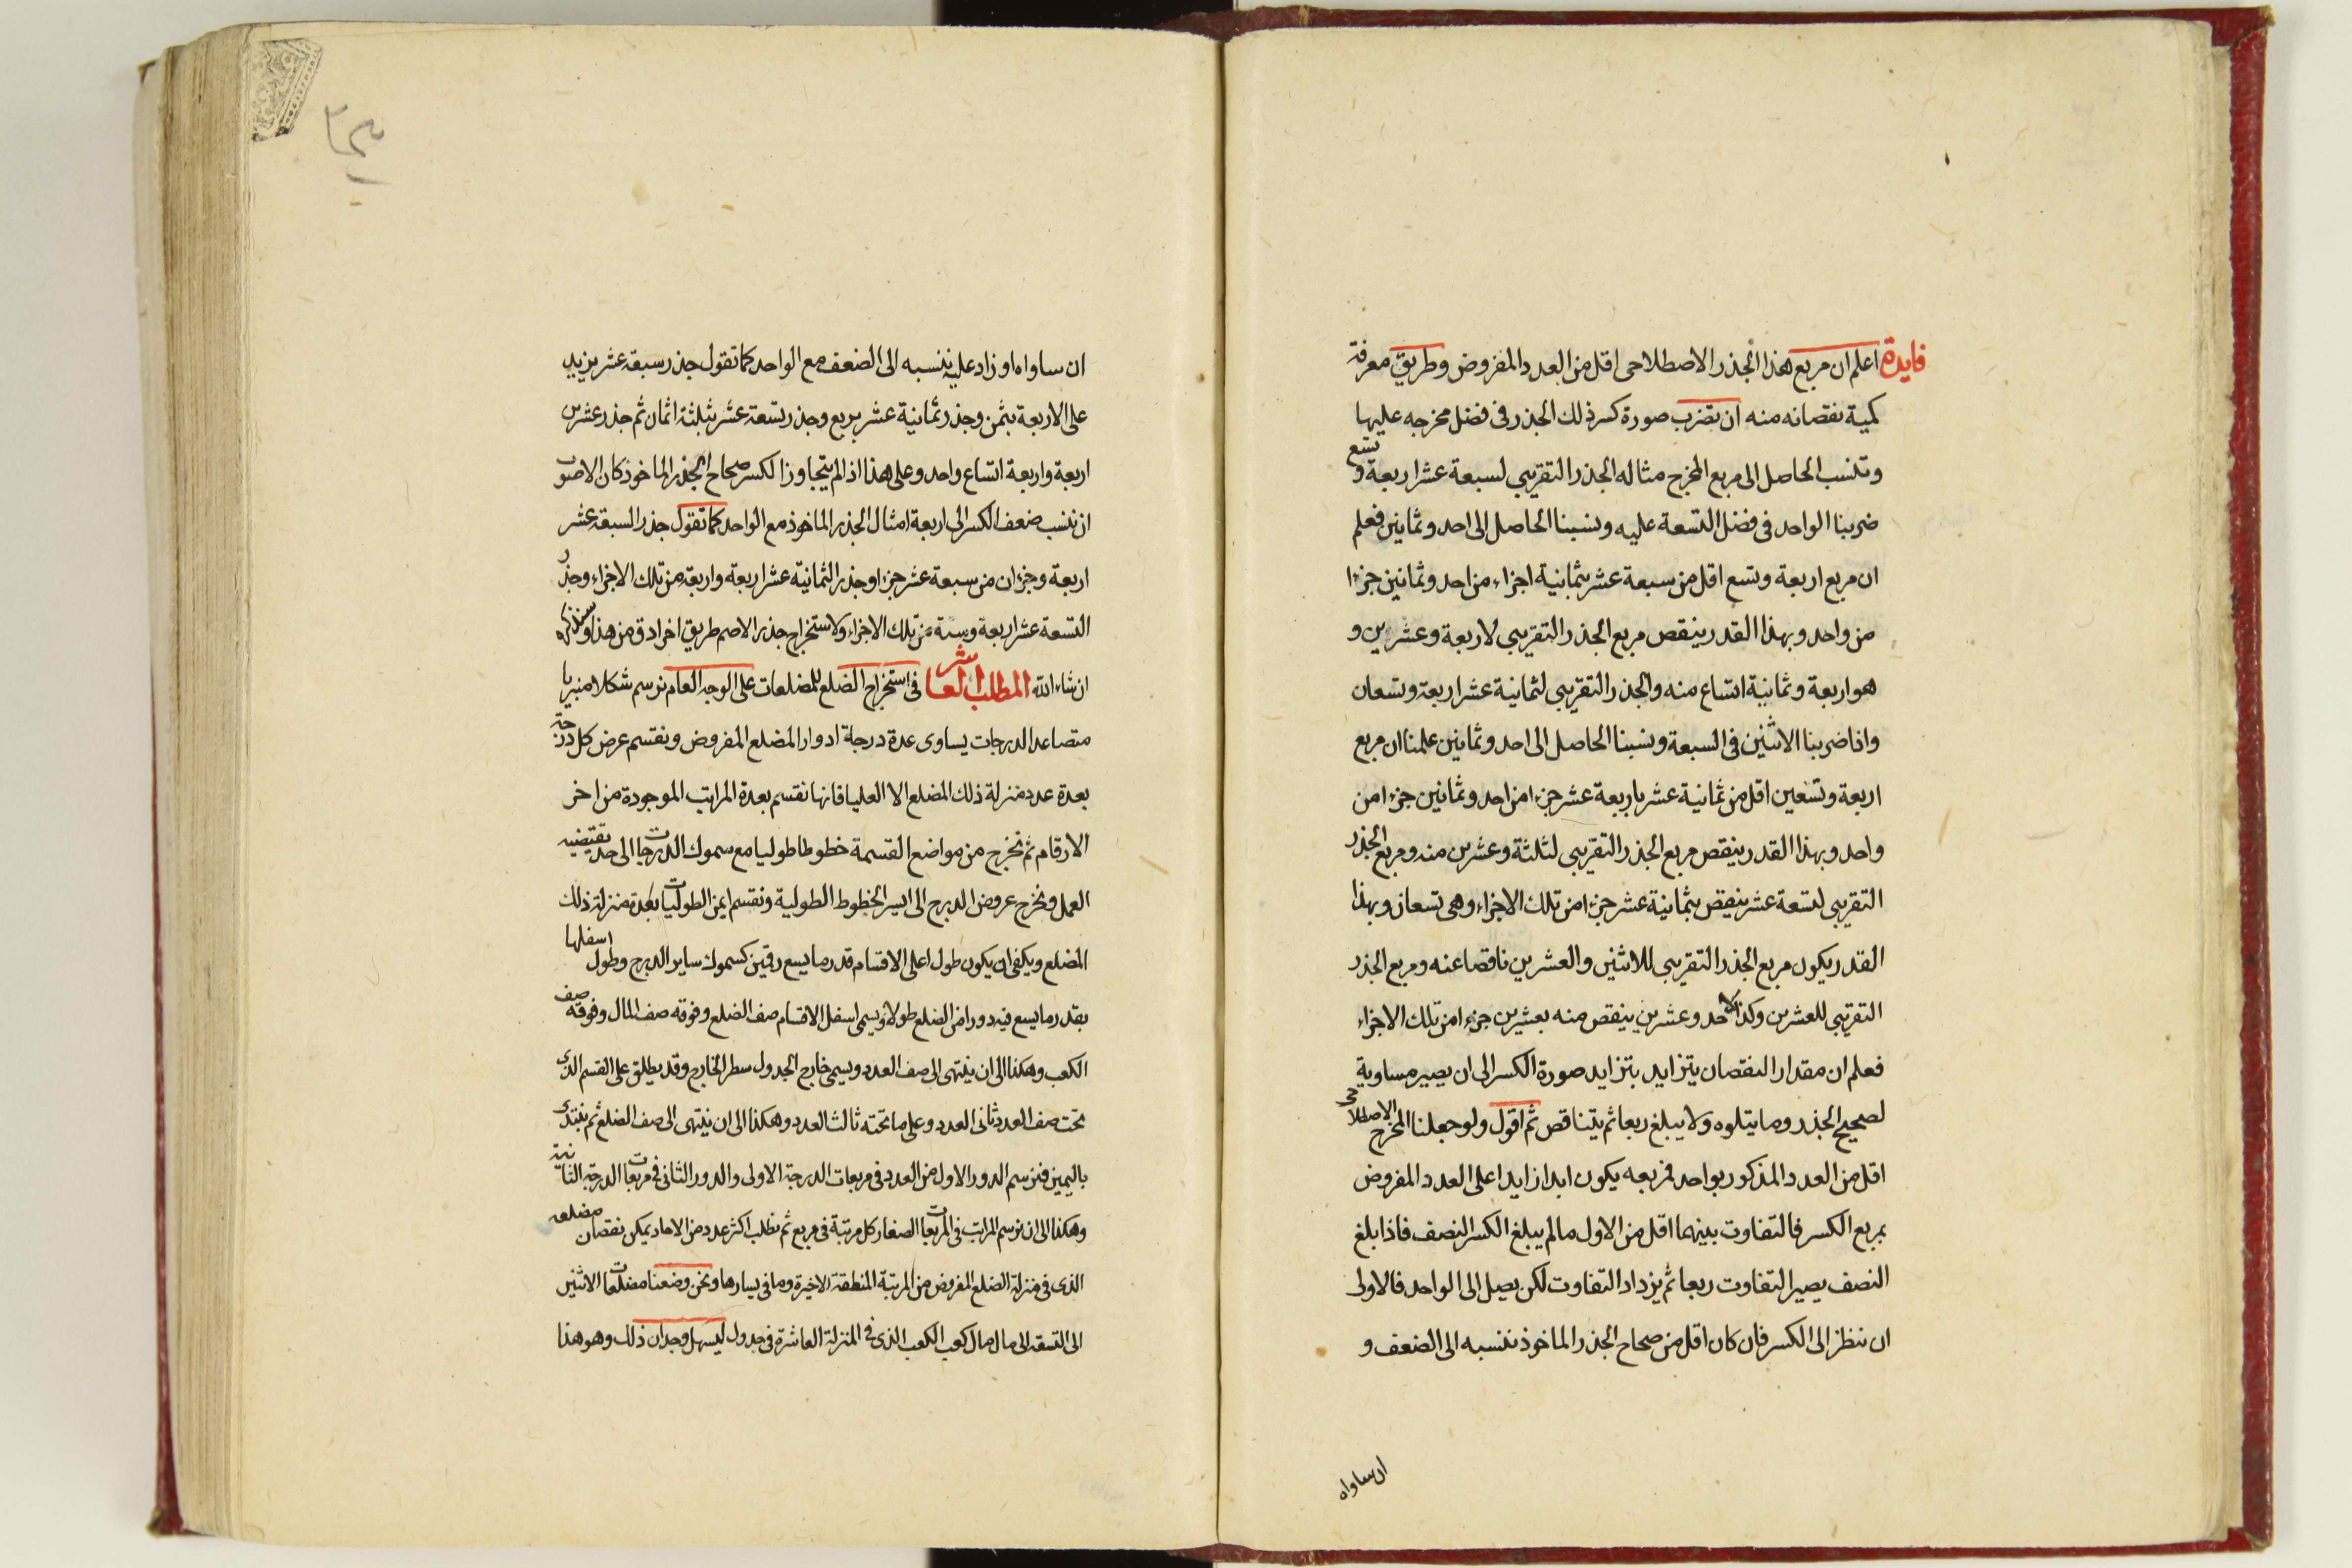 فايدة اعلم ان مربع هذا الجذر الاصطلاحى اقل من العدد المفروض وطريق معرفة
كمية نقصانه منه ان تضرب صورة كسر ذلك الجذر فى فضل مخرجه عليها
وتنسب الحاصل الى مربع المخرج مثاله الجذر التقريبى لسبعة عشر اربعة وتسع
ضربنا الواحد فى فضل التسعة عليه ونسبنا الحاصل الى احد وثمانين فعلم
ان مربع اربعة وتسع اقل من سبعة عشر بثمانية اجزاء من احد وثمانين جزءا
من واحد وبهذا القدر ينقص مربع الجذر التقريبى لاربعة وعشرين و
هو اربعة وثمانية اتساع منه والجذر التقريبى لثمانية عشر اربعة وتسعان
واذا ضربنا الاثنين فى السبعة ونسبنا الحاصل الى احد وثمانين علمنا ان مربع
اربعة وتسعين اقل من ثمانية عشر باربعة عشر جزءا من احد وثمانين جزءا من
واحد وبهذا القدر ينقص مربع الجذر التقريبى لثلثة وعشرين منه ومربع الجذر
التقريبى لتسعة عشر ينقص بثمانية عشر جزءا من تلك الاجزاء وهى تسعان وبهذا
القدر يكون مربع الجذر التقريبى للاثنين والعشرين ناقصا عنه ومربع الجذر
التقريبى للعشرين وكذا لاحد وعشرين ينقص منه بعشرين جزءا من تلك الاجزاء
فعلم ان مقدار النقصان يتزايد بتزايد صورة الكسر الى ان يصير مساوية
لصحيح الجذر وما يتلوه ولا يبلغ ربعا ثم يتناقص ثم اقول ولو جعلنا المخرج الاصطلاحى
اقل من العدد المذكور بواحد فمربعه يكون ابدا زايدا على العدد المفروض
بمربع الكسر فالتفاوت بينهما اقل من الاول ما لم يبلغ الكسر النصف فاذا بلغ
النصف يصير التفاوت ربعا ثم يزداد التفاوت لكن يصل الى الواحد فالاولى
ان ننظر الى الكسر فان كان اقل من صحاح الجذر الماخوذ ننسبه الى الضعف و
ان ساواه
ان ساواه او زاد عليه ننسبه الى الضعف مع الواحد كما تقول جذر سبعة عشر يزيد
على الاربعة بثمن وجذر ثمانية عشر بربع وجذر تسعة عشر بثلثة اثمان ثم جذر عشرين
اربعة واربعة اتساع واحد وعلى هذا اذا لم يتجاوز الكسر صحاح الجذر الماخوذ كان الاصوب
ان ننسب ضعف الكسر الى اربعة امثال الجذر الماخوذ مع الواحد كما تقول جذر السبعة عشر
اربعة وجزءان من سبعة عشر جزءا وجذر الثمانية عشر اربعة واربعة من تلك الاجزاء وجذر
التسعة عشر اربعة وستة من تلك الاجزاء ولاستخراج جذر الاصم طريق اخر ادق من هذا وسنذكره
ان شاء الله المطلب العاشر فى استخراج الضلع للمضلعات على الوجه العام نرسم شكلا منبريا
متصاعد الدرجات يساوى عدة درجة ادوار المضلع المفروض ونقسم عرض كل درجة
بعدة عدد منزلة ذلك المضلع الا العليا فانها نقسم بعدة المراتب الموجودة من اخر
الارقام ثم نخرج من مواضع القسمة خطوطا طوليا مع سموك الدرجات الى حد تقتضيه
العمل ونخرج عروض الدرج الى ايسر الخطوط الطولية ونقسم ايمن الطوليات بعدة منزلة ذلك
المضلع ويكفى ان يكون طول اعلى الاقسام قدر ما يسع رقمين كسموك ساير الدرج وطول اسفلها
بقدر ما يسع فيه دوران الضلع طولا ويسمى اسفل الاقسام صف الضلع وفوقه صف المال وفوقه صف
الكعب وهكذا الى ان ينتهى الى صف العدد ويسمى خارج الجدول سطر الخارج وقد يطلق على القسم الذى
تحت صف العدد ثانى العدد وعلى ما تحته ثالث العدد وهكذا الى ان ينتهى الى صف الضلع ثم نبتدى
باليمين فنرسم الدور الاول من العدد فى مربعات الدرجة الاولى والدور الثانى فى مربعات الدرجة الثانية
وهكذا الى ان نرسم المراتب فى المربعات الصغار كل مرتبة فى مربع ثم نطلب اكثر عدد من الاحاد يمكن نقصان مضلعه
الذى فى منزلة الضلع المفروض من المرتبة المنطقة الاخيرة وما فى يسارها ونحن وضعنا مضلعات الاثنين
الى التسعة الى مال مال كعب الكعب الذى فى المنزلة العاشرة فى جدول ليسهل وجدان ذلك وهو هذا